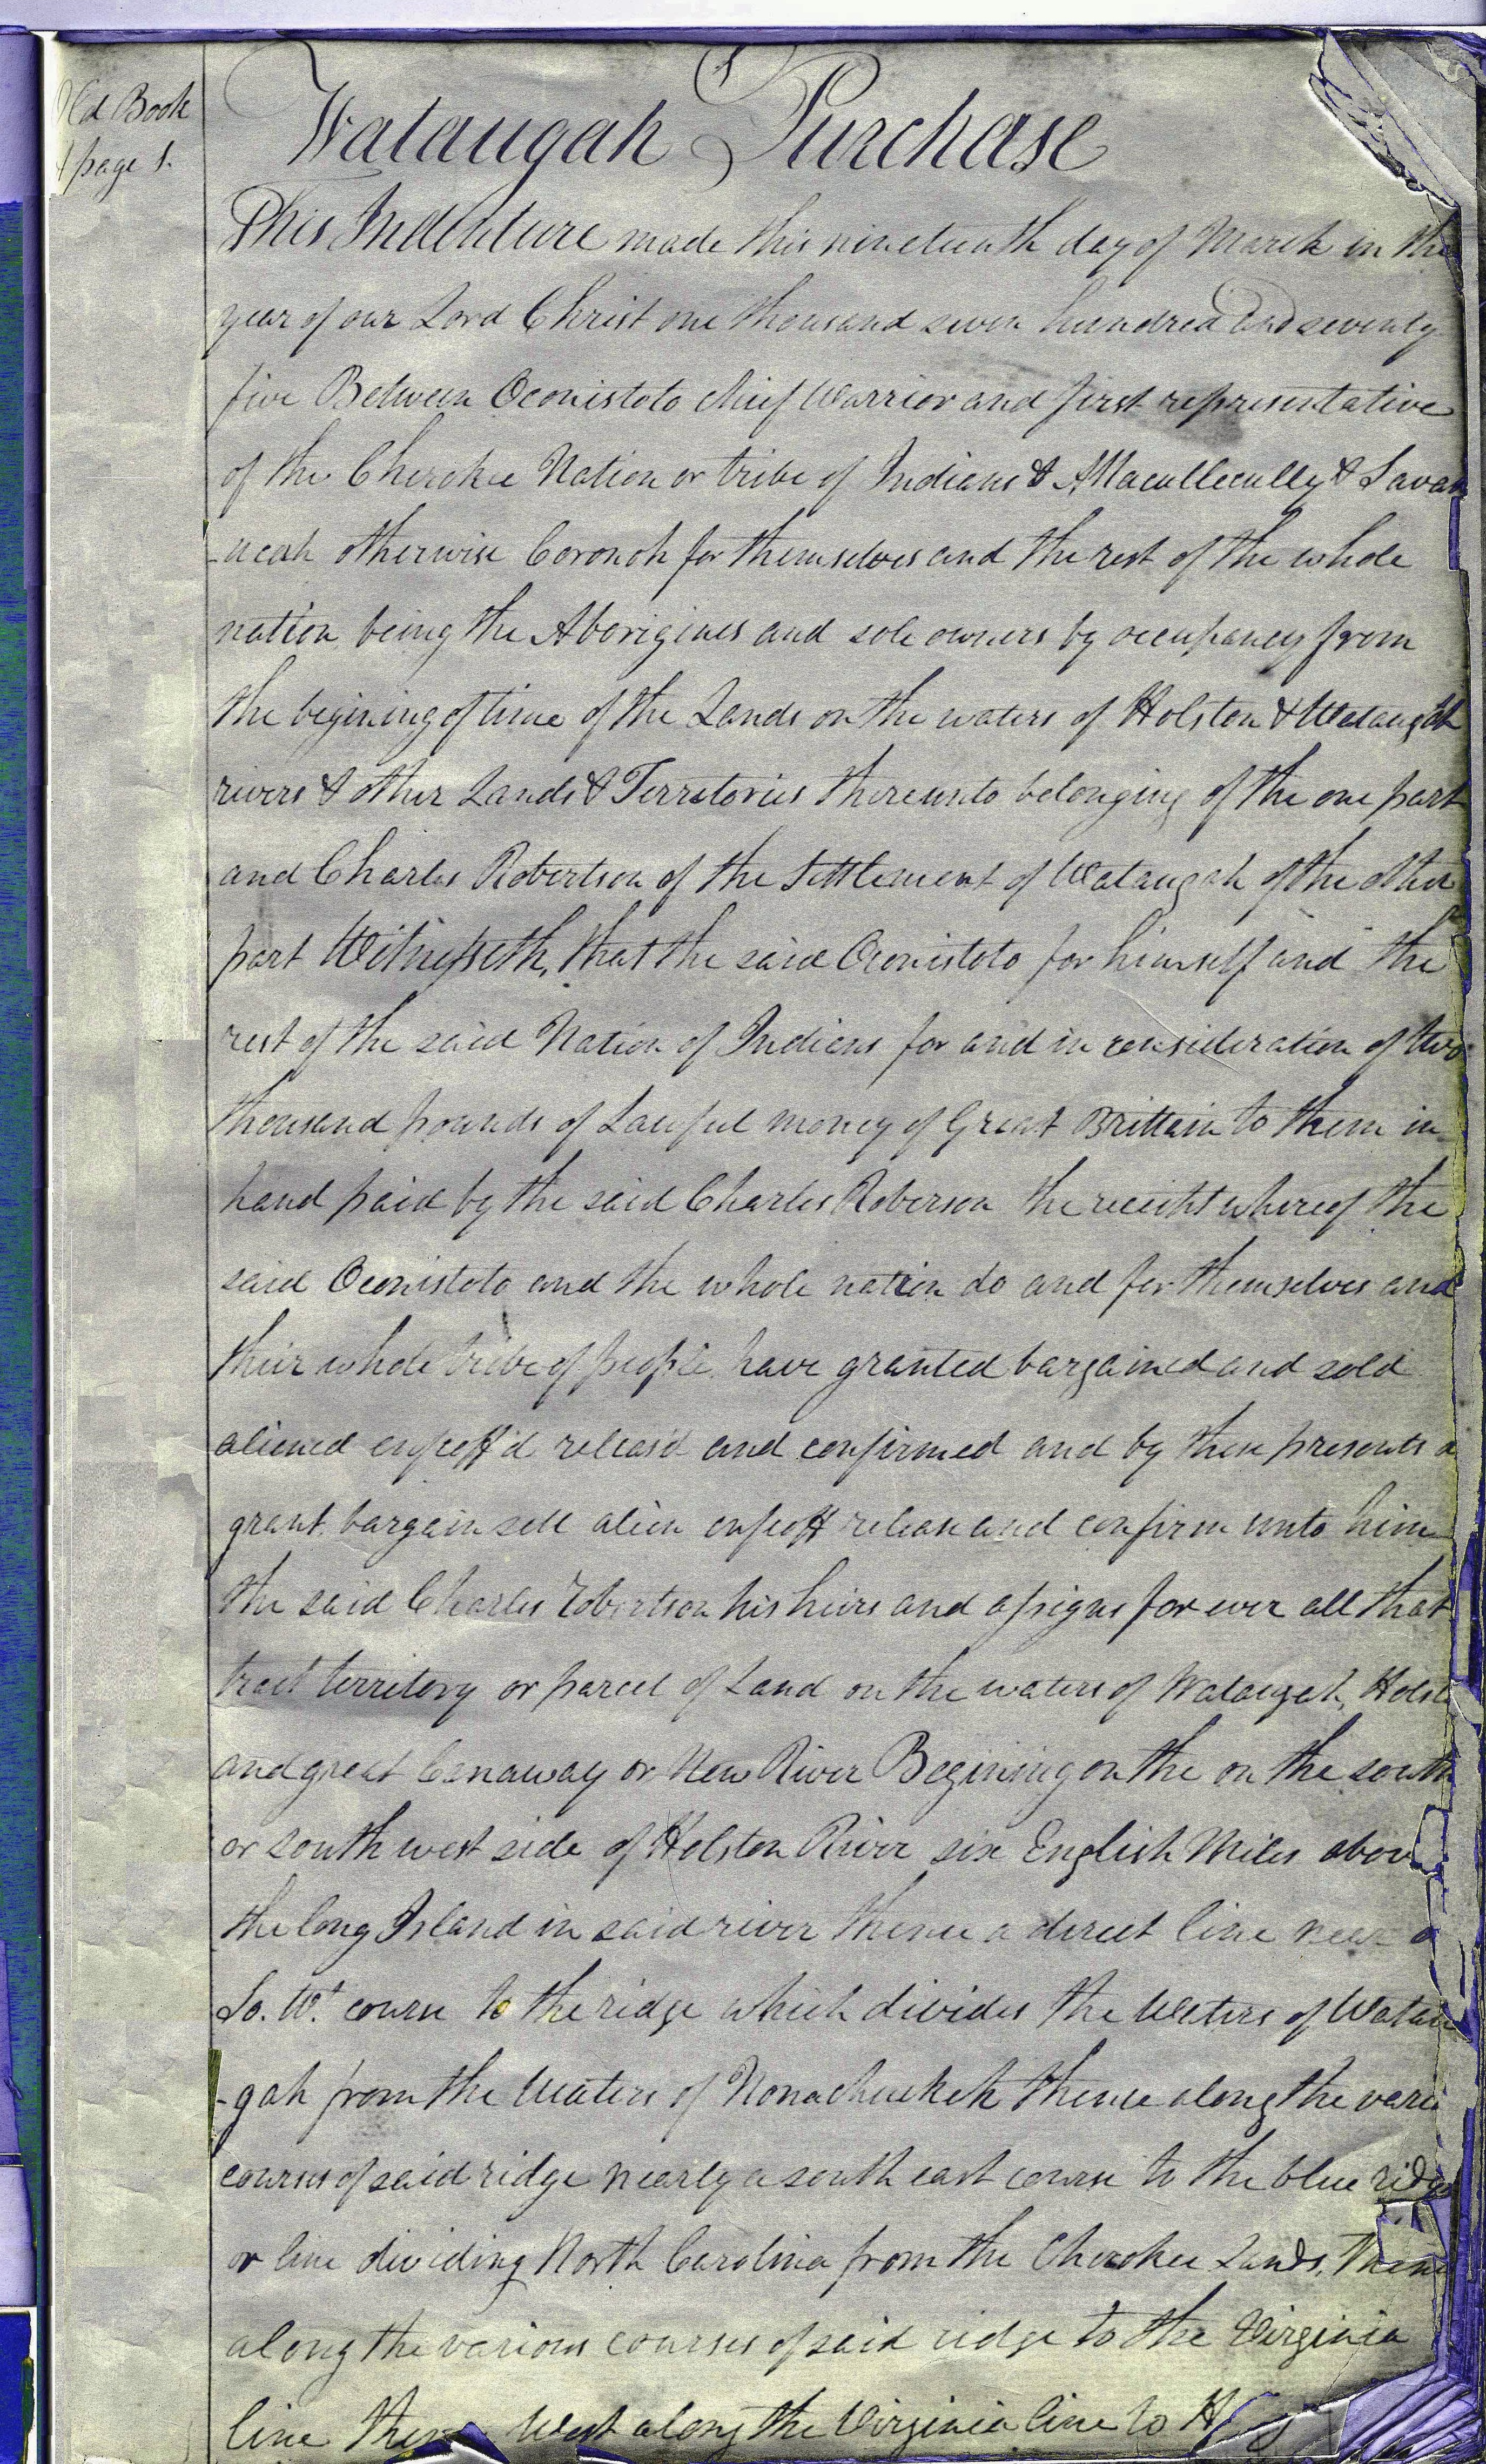 Old Book
A page 1.
Wataugah Purchase
This Indenture made this nineteenth day of March in the
year of our Lord Christ one thousand seven hundred and seventy
five Between Oconistoto chief Warrior and first representative
of the Cherokee Nation or tribe of Indians & Attacullecully & Savan
-ucah otherwise Coronoh for themselves and the rest of the whole
nation being the Aborigines and sole owners by occupancy from
the begining of time of the Lands on the waters of Holston & Wataugah
rivers & other Lands & Territories thereunto belonging of the one part
and Charles Robertson of the Settlement of Wataugah of the other
part Witnesseth, that the said Oconistoto for himself and the
rest of the said Nation of Indians for and in consideration of two
thousand pounds of Lawful money of Great Brittain to them in
hand paid by the said Charles Roberson the receipt whereof the
said Oconistoto and the whole nation do and for themselves and
their whole tribe of people have granted bargained and sold
aliened enfeoff'd releas'd and confirmed and by these presents
grant bargain sell alien enfeoff release and confirm unto him
the said Charles Robertson his heirs and assigns for ever all that
tract territory or parcel of Land on the waters of Wataugah, Holst
and great Canaway or New River Begining on the on the south
or south west side of Holston River six English Miles above
the long Island in said river thence a direct line near a
So. Wt. course to the ridge which divides the Waters of Watau
-gah from the Waters of Nonachuckeh thence along the vari
courses of said ridge nearly a south east course to the blue ridge
or line dividing North Carolina from the Cherokee Lands, thence
along the various courses of said ridge to the Virginia
line thence West along the Virginia line to